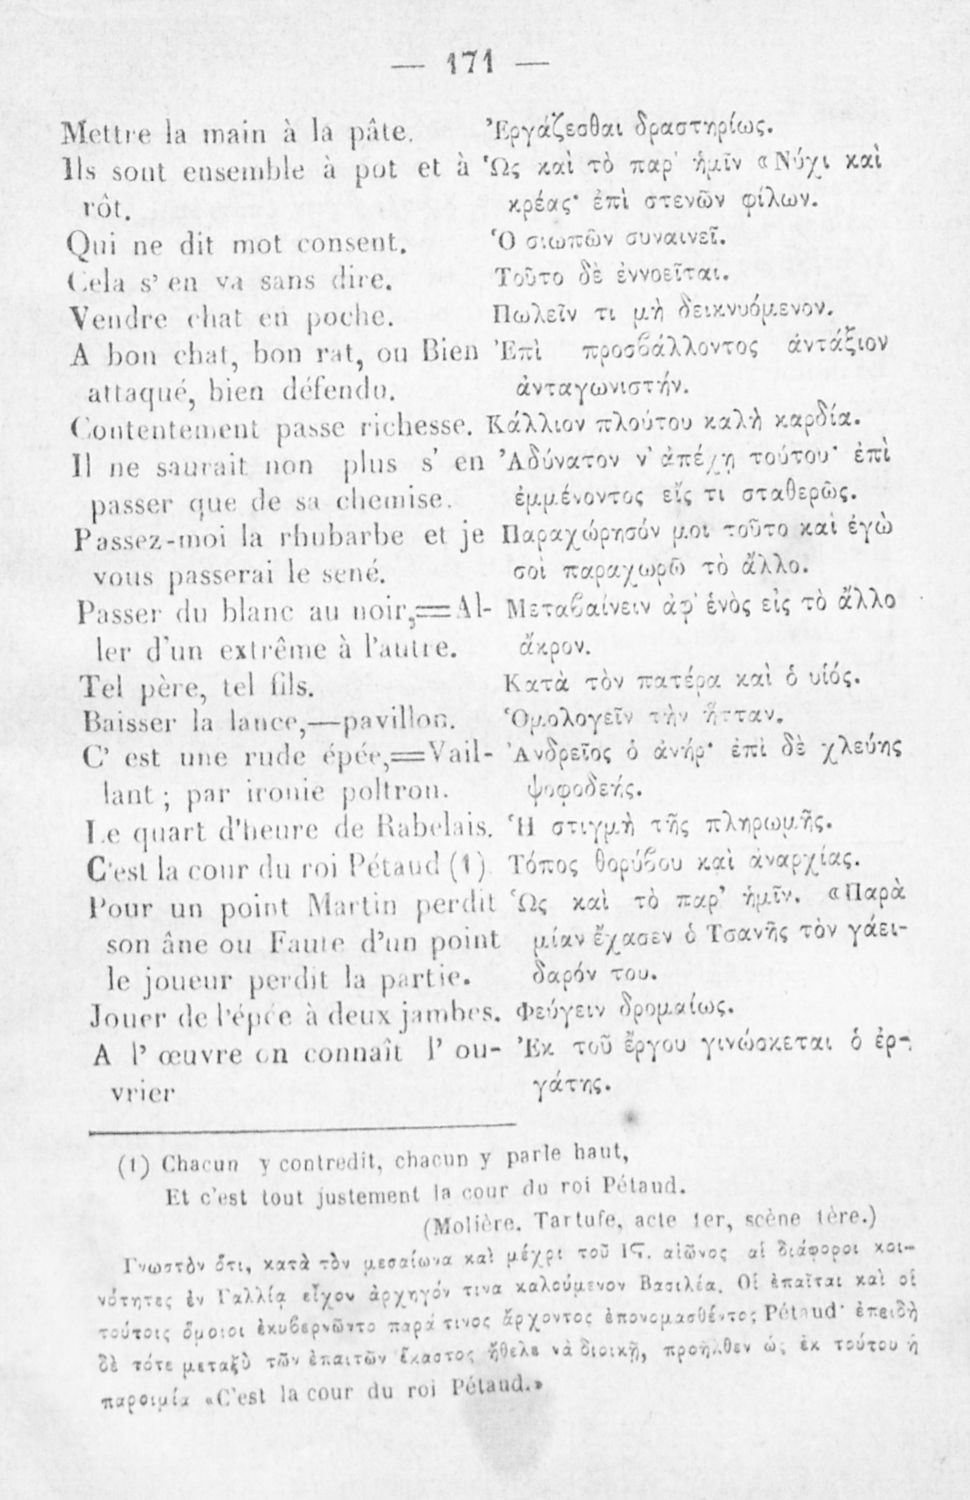 — 171 —
Mettre la main à la pâte. Ἐργάζεσθαι δραστηρίως.
Ils sont ensemble à pot et à Ὡς καὶ τὸ παρ' ἡμῖν «Νύχι καὶ
rôt. κρέας· ἐπὶ στενῶν φίλων.
Qui ne dit mot consent. Ὁ σιωπῶν συναινεῖ.
Cela s' en va sans dire. Τοῦτο δὲ ἐννοεῖται.
Vendre chat en poche. Πωλεῖν τι μὴ δεικνυόμενον.
A bon chat, bon rat, ou Bien Ἐπὶ προσβάλλοντος ἀντάξιον
attaqué, bien défendu. ἀνταγωνιστήν.
Contentement passe richesse. Κάλλιον πλούτου καλὴ καρδία.
Il ne saurait non plus s' en Ἀδύνατον ν' ἀπέχῃ τούτου· ἐπὶ
passer que de sa chemise. ἐμμένοντος εἴς τι σταθερῶς.
Passez-moi la rhubarbe et je Παραχώρησόν μοι τοῦτο καὶ ἐγὼ
vous passerai le sené. σοὶ παραχωρῶ τὸ ἄλλο.
Passer du blanc au noir,=Al- Μεταβαίνειν ἀφ' ἑνὸς εἰς τὸ ἄλλο
ler d'un extrême à l'autre. ἄκρον.
Tel père, tel fils. Κατὰ τὸν πατέρα καὶ ὁ υἱός.
Baisser la lance,—pavillon. Ὁμολογεῖν τὴν ἧτταν.
C' est une rude épée,=Vail- Ἀνδρεῖος ὁ ἀνήρ· ἐπὶ δὲ χλεύης
lant ; par ironie poltron. ψοφοδεής.
Le quart d'heure de Rabelais. Ἡ στιγμὴ τῆς πληρωμῆς.
C'est la cour du roi Pétaud (1) Τόπος θορύβου καὶ ἀναρχίας.
Pour un point Martin perdit Ὡς καὶ τὸ παρ' ἡμῖν. «Παρὰ
son âne ou Faute d'un point μίαν ἔχασεν ὁ Τσανῆς τὸν γάει-
le joueur perdit la partie. δαρόν του.
Jouer de l'épée à deux jambes. Φεύγειν δρομαίως.
A l' œuvre on connaît l' ou- Ἐκ τοῦ ἔργου γινώσκεται ὁ ἐρ-
vrier γάτης.
(1) Chacun y contredit, chacun y parle haut,
Et c'est tout justement la cour du roi Pétaud.
(Molière. Tartufe, acte 1er, scène 1ère.)
Γνωστὸν ὅτι, κατὰ τὸν μεσαίωνα καὶ μέχρι τοῦ Ις. αἰῶνος αἱ διάφοροι κοι-
νότητες ἐν Γαλλίᾳ εἶχον ἀρχηγόν τινα καλούμενον Βασιλέα. Οἱ ἐπαῖται καὶ οἱ
τούτοις ὅμοιοι ἐκυβερνῶντο παρά τινος ἄρχοντος ἐπονομασθέντος Pétaud· ἐπειδὴ
δὲ τότε μεταξὺ τῶν ἐπαιτῶν ἕκαστος ἤθελε νὰ διοικῇ, προῆλθεν ὡς ἐκ τούτου ἡ
παροιμία «C'est la cour du roi Pétaud.»